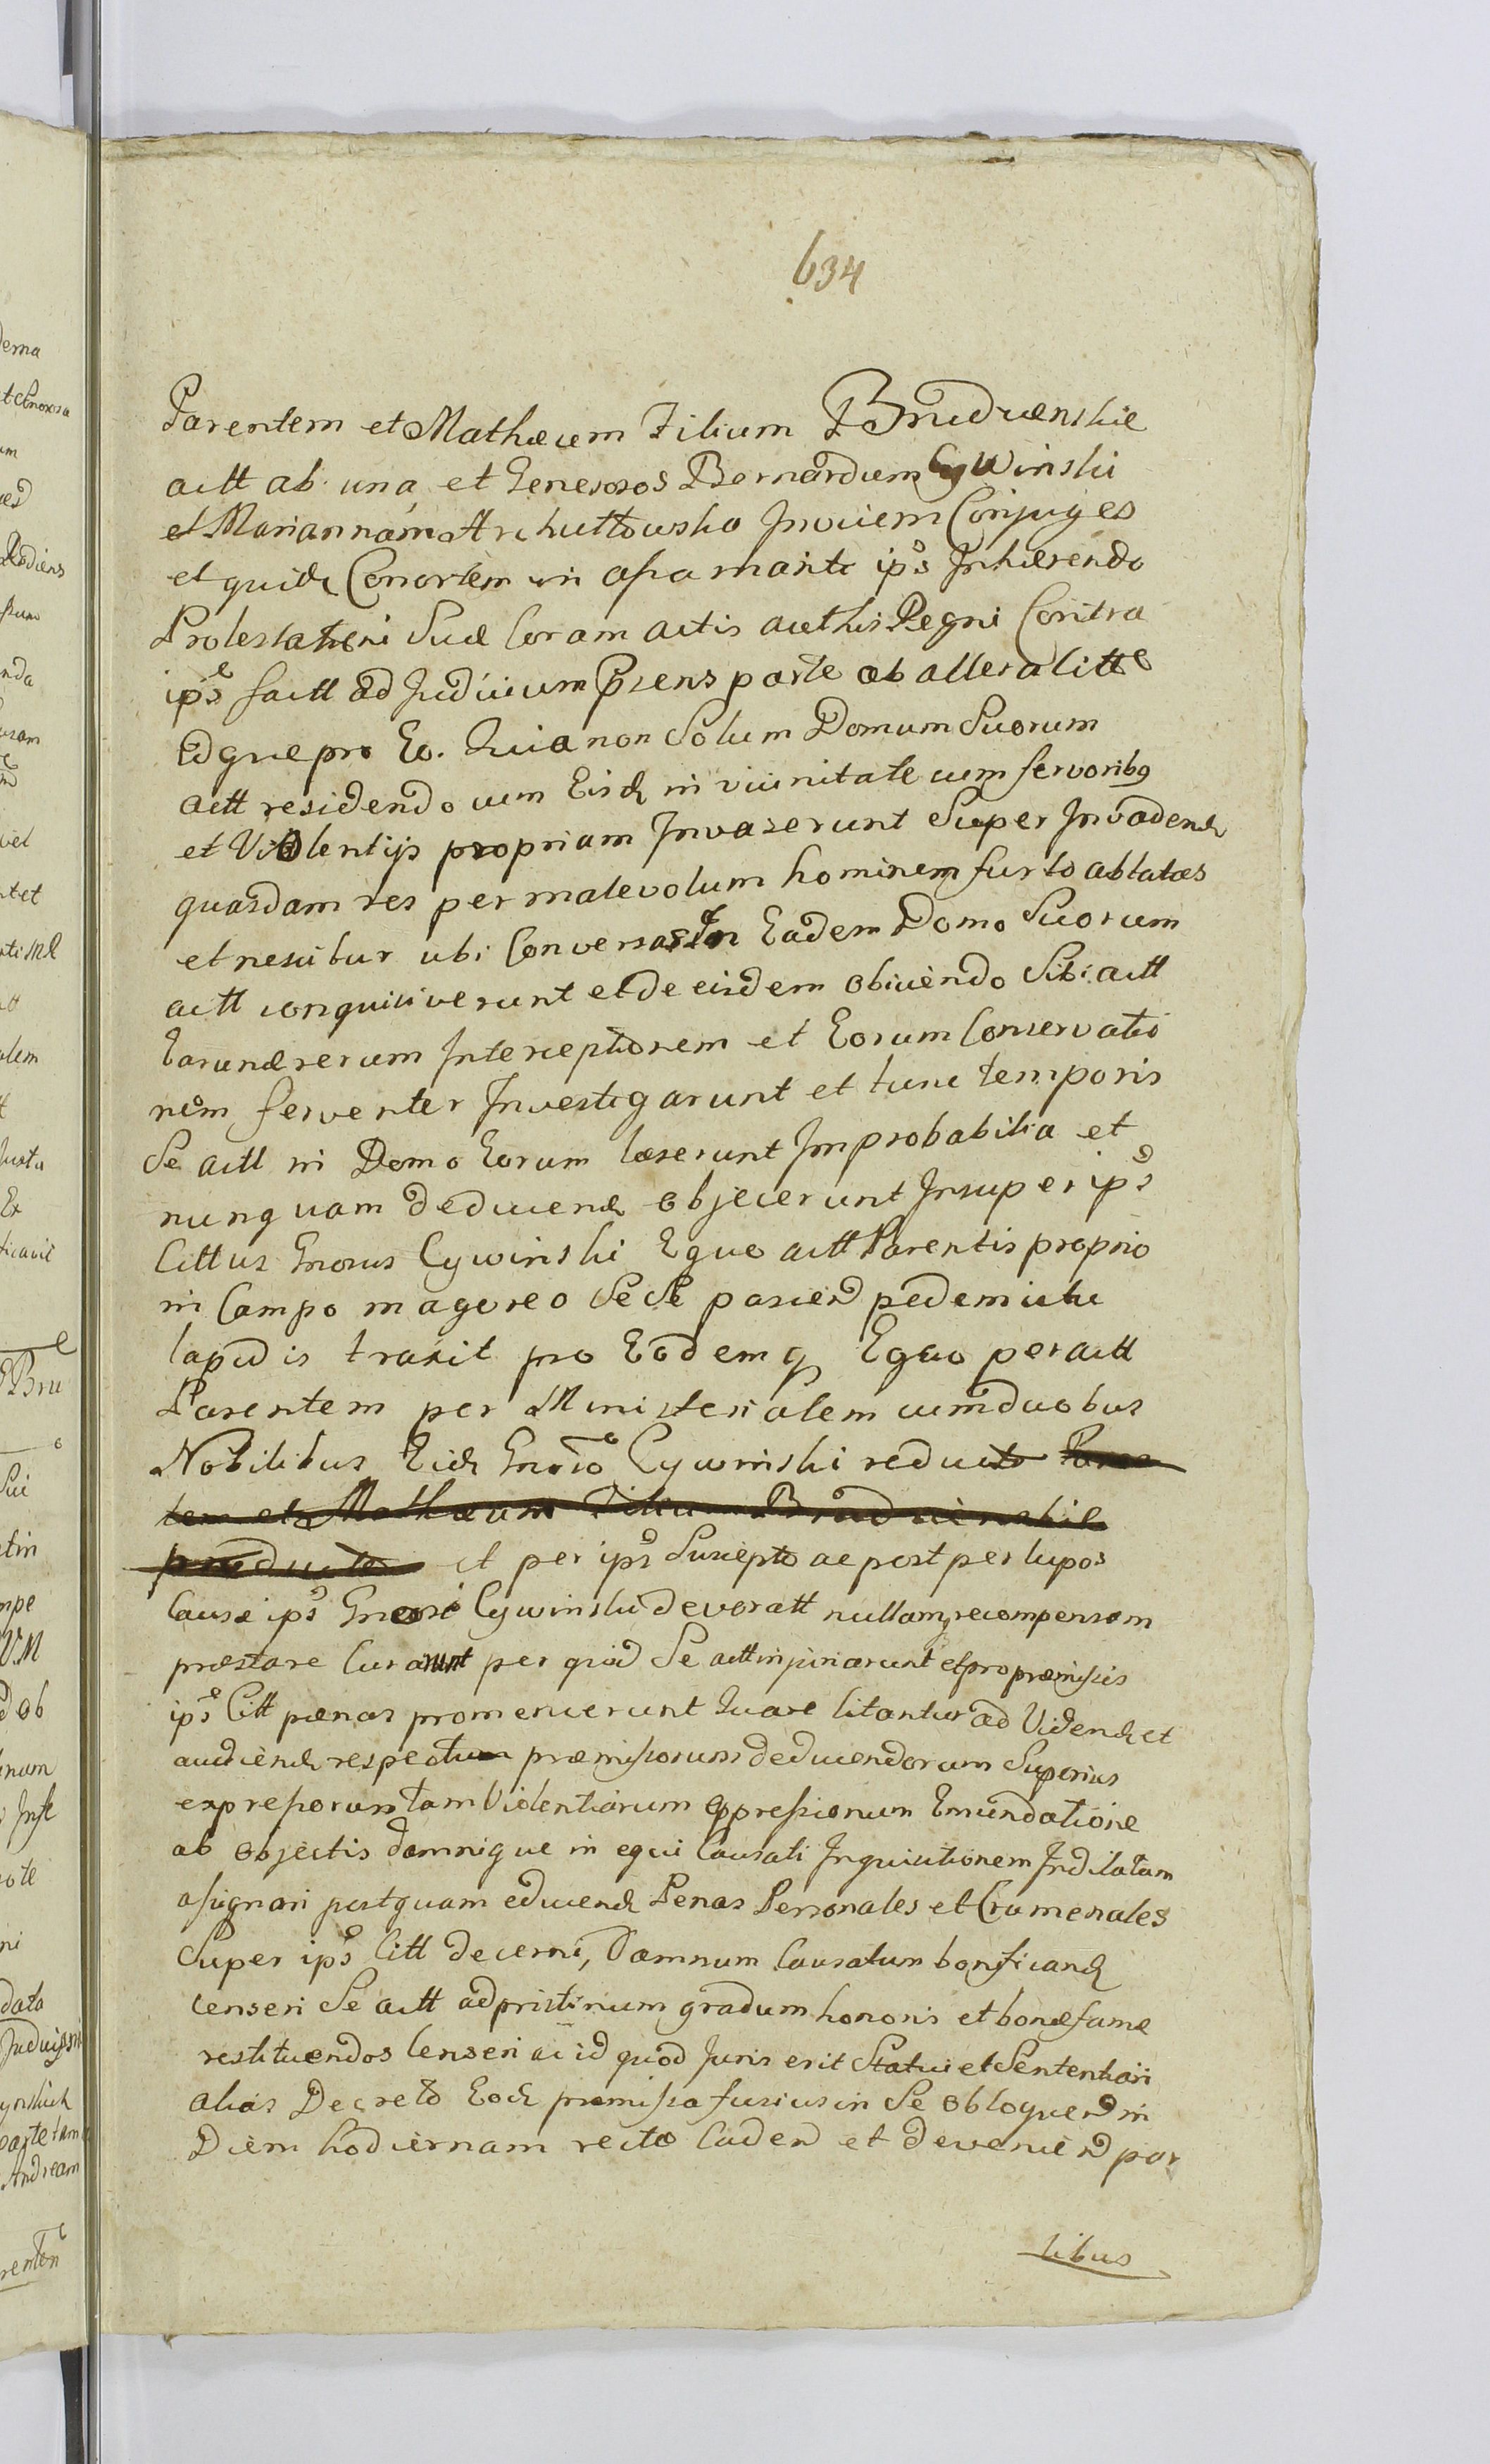 634
Parentem et Mathæum Filium Brudzienskie
actt ab una et Generosos Bernardum Cywinski
et Mariannam Archuttowska Invicem Conjuges
et quidē Consortem in assa mariti ips Inhærendo
Protestationi Suæ Coram actis aucthis Regni Contra
ipse factt ad Judicium Præns parte ab altera citte
Idque pro Eo. Quia non Solum Domum Suorum
actt residendo cum Eisd in vicinitate cum servoribq
et Violentijs propriam Invaserunt Super Invadend
quasdam res per malevolum hominem furto ablatas
et nescitur ubi Conversas In Eadem Domo Suorum
actt conquisiverunt et de eisdem obiiciendo Sibi actt
Earund rerum Interceptionem et Eorum Conservatio
nem ferventer Investigarunt et tunc temporis
Se actt in Domo Eorum læserunt Improbabilia et
nunquam deducend objecerunt Insuper ips
Cittus Gnosus Cywinski Equo actt Parentis proprio
in Campo magoreo Se Se pascend pedem ictu
lapidis traxit pro Eodemq Equo per actt
Parentem per Ministerialem cum duobus
Nobilibus Eid Gnoso Cywinski reducto Paren
tem et Mathæum Filium Brudzienskie
producto et per ips Suscepto ac post per lupos
Causa ips Gnosi Cywinski devoratt nullamq recompensam
præstare Curarunt per quod Se actt injuriarunt et pro præmissis
ipse Citt pœnas promeruerunt Quare Citantur ad Vidend et
audiend respectum præmissorum deducendorum Superius
expressorum tam Violentiarum oppressionum Emundatione
ab objectis damnique in equi Causati Inquisitionem Indilatam
assignari postquam educend Penas Personales et Crumenales
Super ips Citt decerni, Damnum Causatum bonificand
Censeri Se actt ad pristinum gradum honoris et bonæ famæ
restituendos Censeri ac id quod Juris erit Statui et Sententiari
alias Decreto Eod præmissa fusius in Se obloquend in
Diem hodiernam recte Cadend et deveniend par
tibus